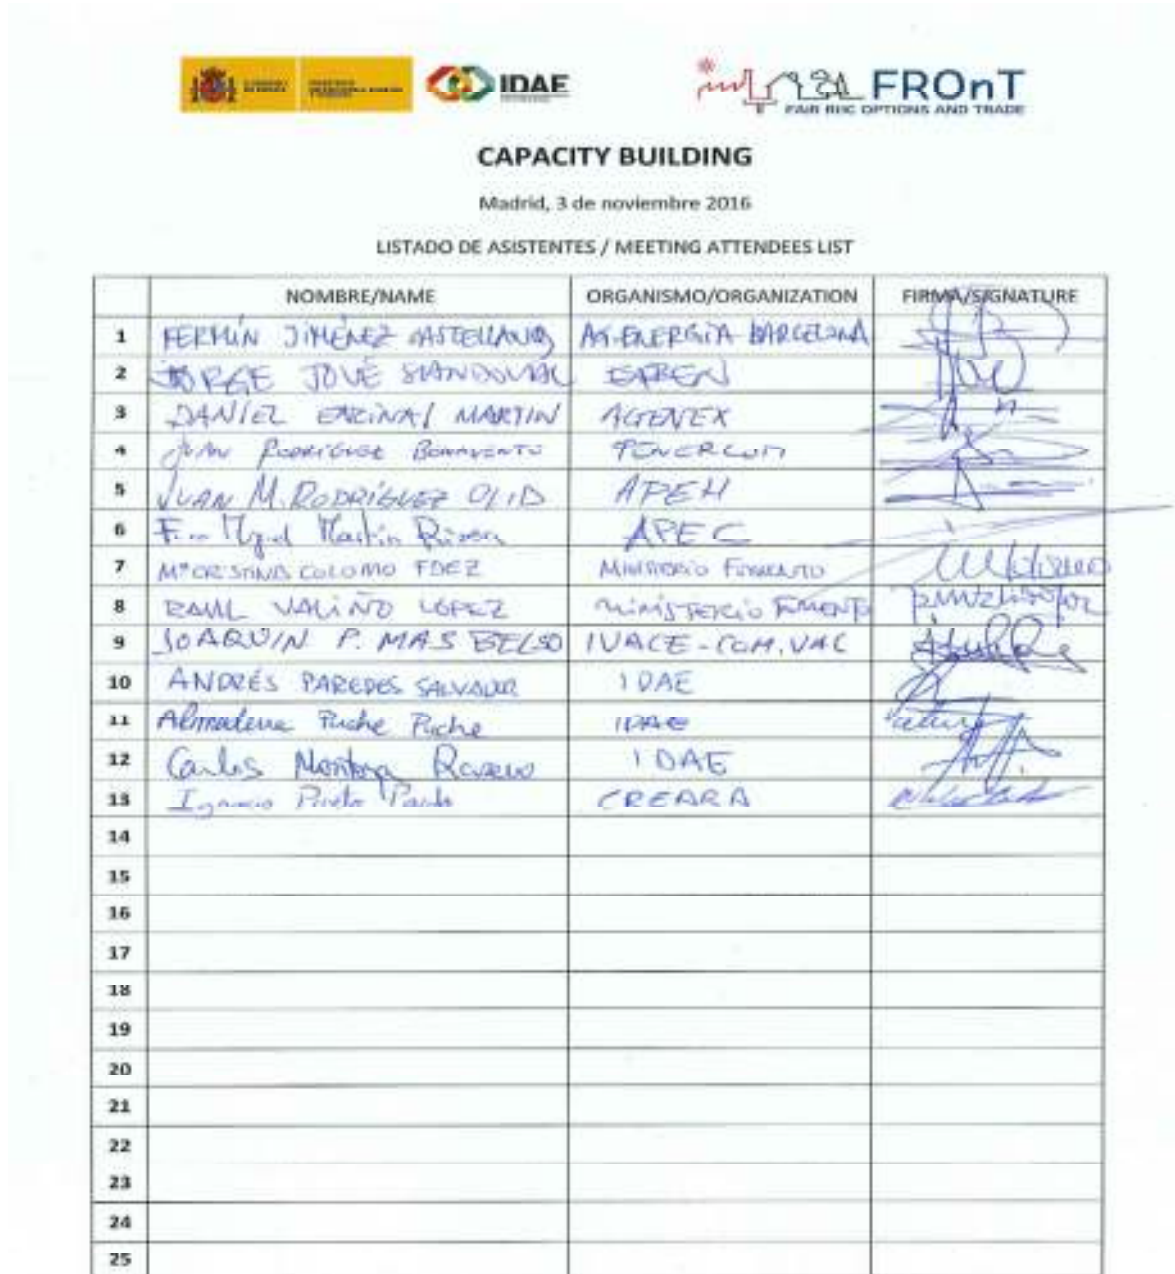 IDAE
FROnT
FAIR RHC OPTIONS AND TRADE
CAPACITY BUILDING
Madrid, 3 de noviembre 2016
LISTADO DE ASISTENTES / MEETING ATTENDEES LIST
NOMBRE/NAME ORGANISMO/ORGANIZATION FIRMA/SIGNATURE
1 FERMÍN JIMÉNEZ CASTELLANOS AG. ENERGÍA BARCELONA
2 JORGE JOVÉ SANDOVAL EAREN
3 DANIEL ENCINAS MARTIN AGENEX
4 JUAN RODRIGUEZ BONAVENTO
5 JUAN M. RODRÍGUEZ OLID APEH
6 Martín APEC
7 Mª CRISTINA COLOMO FDEZ MINISTERIO FOMENTO
8 RAUL VALIÑO LÓPEZ MINISTERIO FOMENTO
9 JOAQUIN P. MAS BELSO IVACE-COM.VAC
10 ANDRÉS PAREDES SALVADOR IDAE
11 Almudena Puche Puche IDAE
12 Carlos Montoya IDAE
13 Ignacio Prieto CREARA
14
15
16
17
18
19
20
21
22
23
24
25